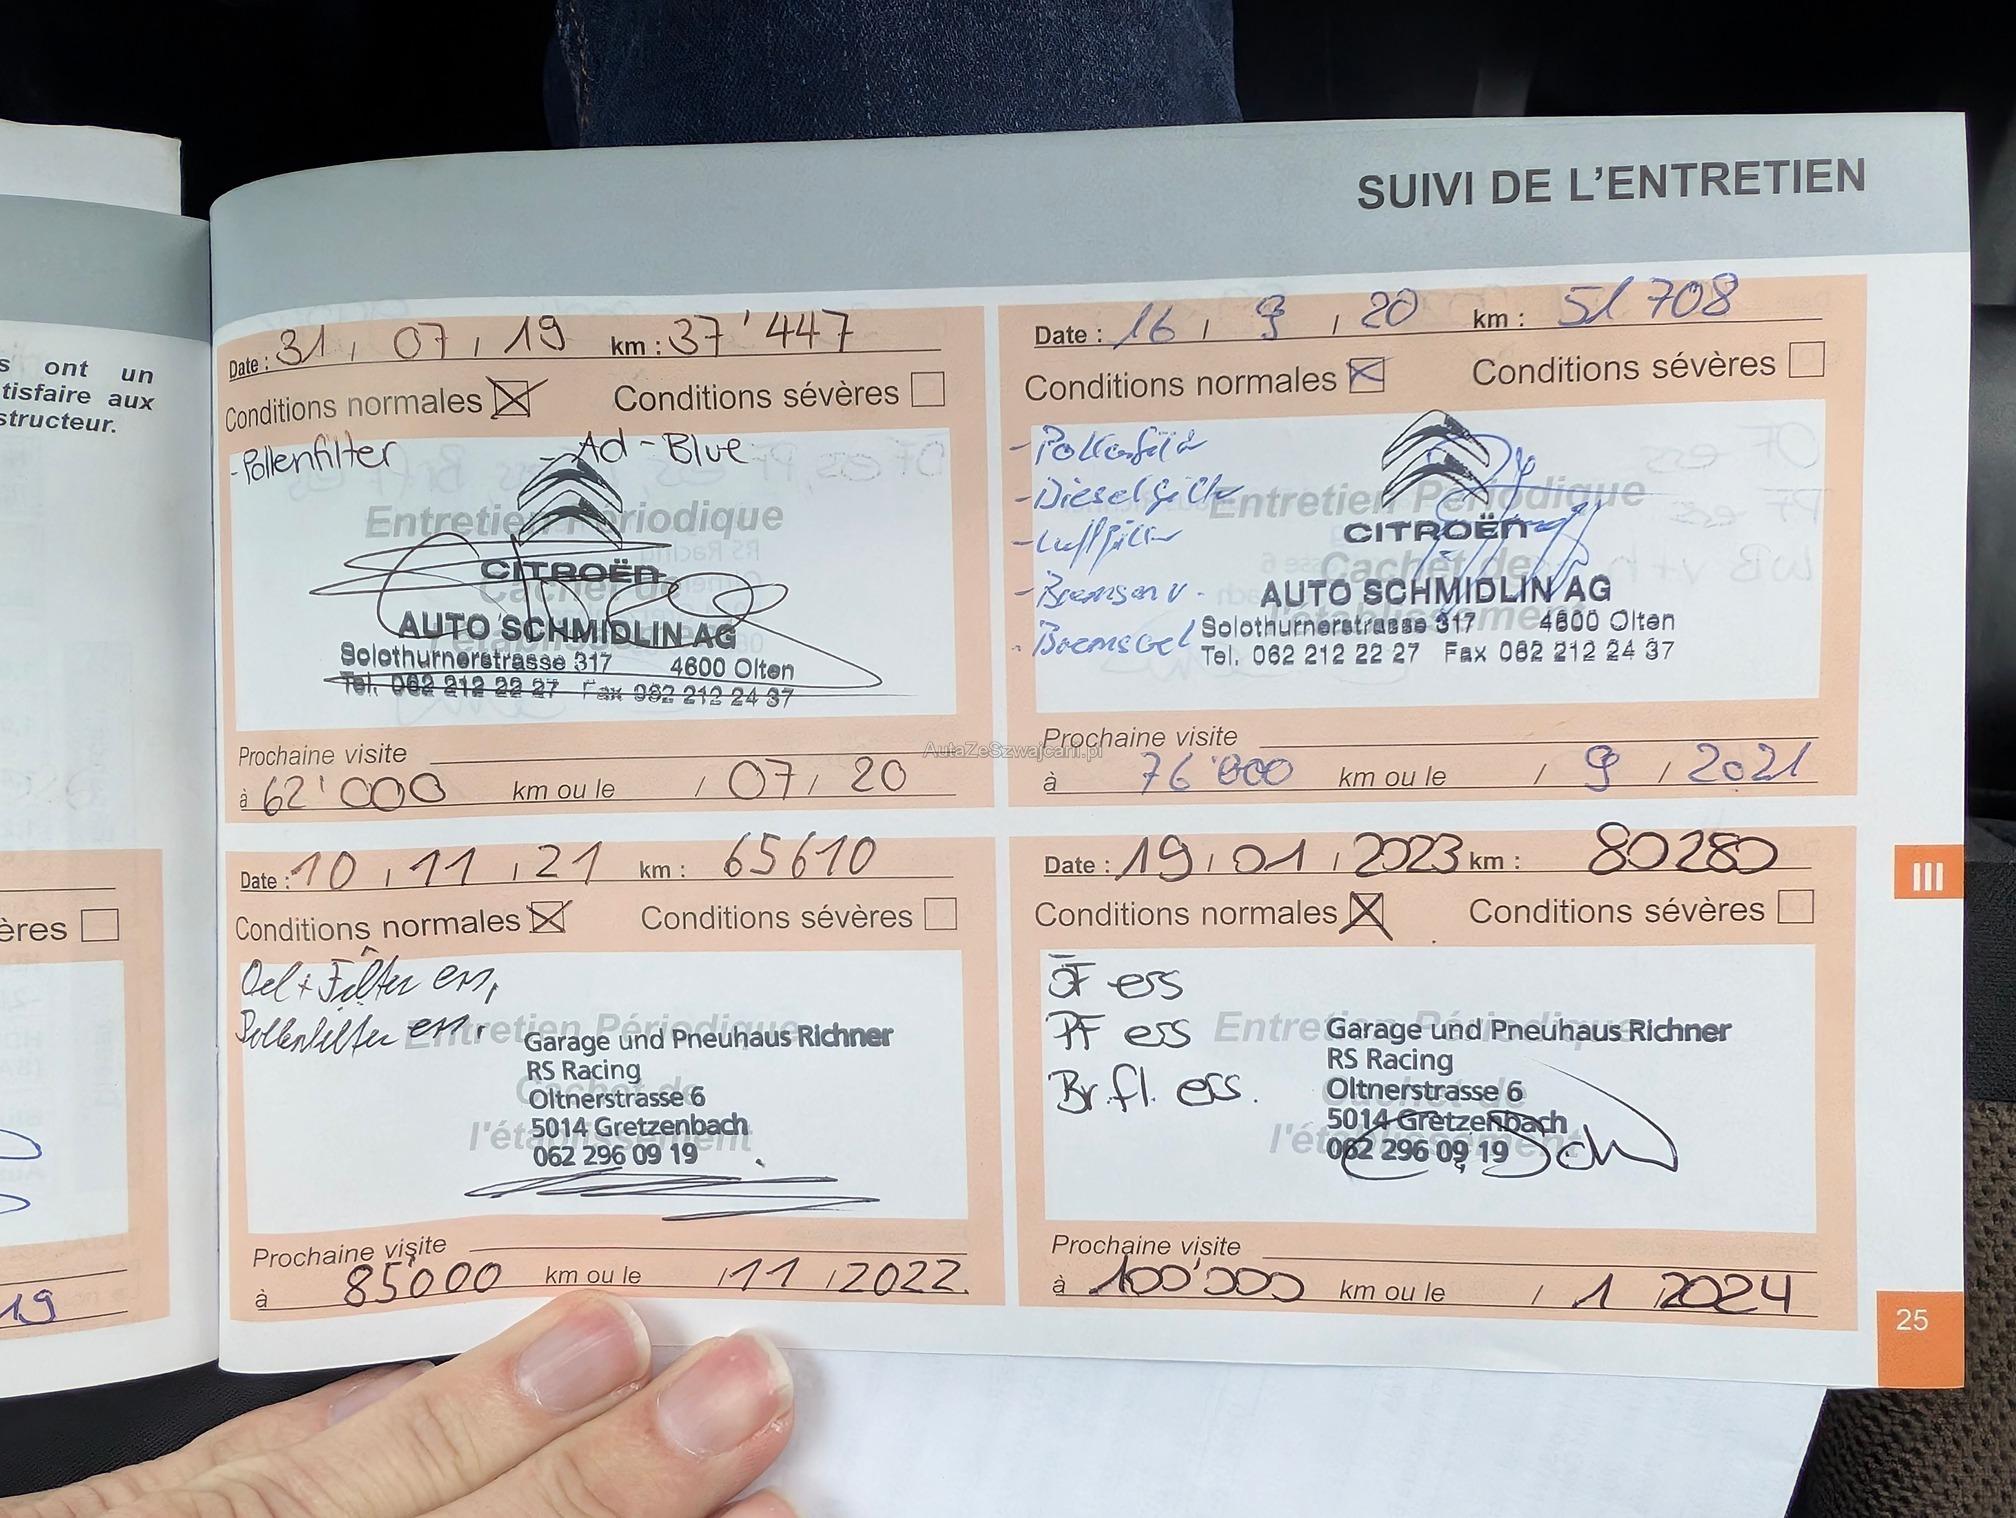 s ont un
tisfaire aux
structeur.
ères
19
SUIVI DE L'ENTRETIEN
Date : 31 / 07 / 19 km : 37'447
Conditions normales Conditions sévères
- Pollenfilter - Ad-Blue
Entretien Périodique
CITROËN
Cachet de
AUTO SCHMIDLIN AG
l'établissement
Solothurnerstrasse 317 4600 Olten
Tel. 062 212 22 27 Fax 062 212 24 37
Prochaine visite
à 62'000 km ou le / 07 / 20
Date : 16 / 9 / 20 km : 51 708
Conditions normales Conditions sévères
- Pollenfilter
- Dieselfilter
Entretien Périodique
- Luftfilter
CITROËN
Cachet de
- Bremsen v.
AUTO SCHMIDLIN AG
l'établissement
Solothurnerstrasse 317 4600 Olten
Tel. 062 212 22 27 Fax 062 212 24 37
Prochaine visite
à 76'000 km ou le / 9 / 2021
AutaZeSzwajcarii.pl
Date : 10 / 11 / 21 km : 65610
Conditions normales Conditions sévères
Oel + Filter ers,
Pollenfilter ers.
Entretien Périodique
Garage und Pneuhaus Richner
RS Racing
Cachet de
Oltnerstrasse 6
5014 Gretzenbach
l'établissement
062 296 09 19
Prochaine visite
à 85'000 km ou le / 11 / 2022.
Date : 19 / 01 / 2023 km : 80280
Conditions normales Conditions sévères
ÖF ess
PF ess
Br.fl. ess.
Entretien Périodique
Garage und Pneuhaus Richner
RS Racing
Cachet de
Oltnerstrasse 6
5014 Gretzenbach
l'établissement
062 296 09 19
Prochaine visite
à 100'000 km ou le / 1 / 2024
III
25